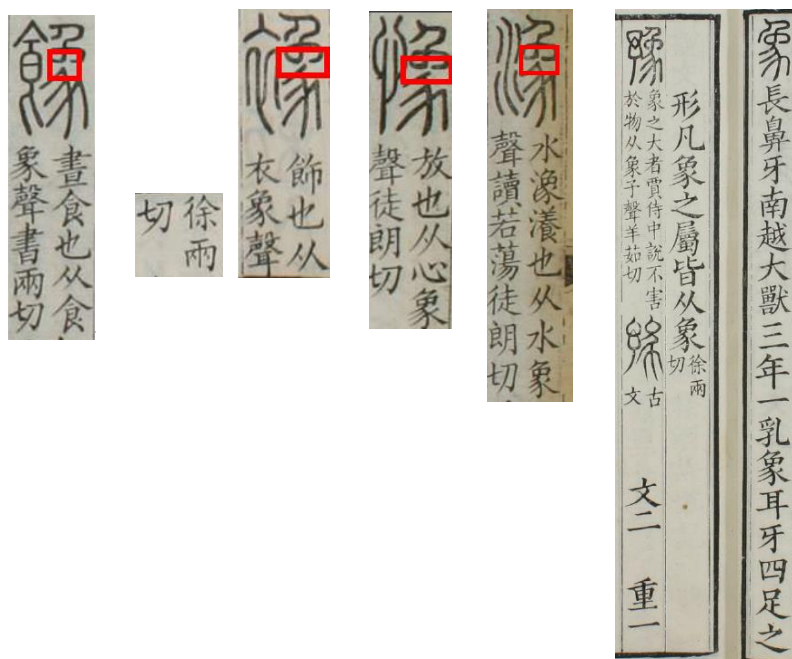 晝食也从食
象聲書兩切
徐兩
切
襐
飾也从
衣象聲
放也从心象
聲徒朗切
潒
水潒瀁也从水象
聲讀若蕩徒朗切
象長鼻牙南越大獸三年一乳象耳牙四足之
形凡象之屬皆从象
徐兩
切
豫
象之大者賈侍中說不害
於物从象予聲羊茹切
古
文
文二
重一